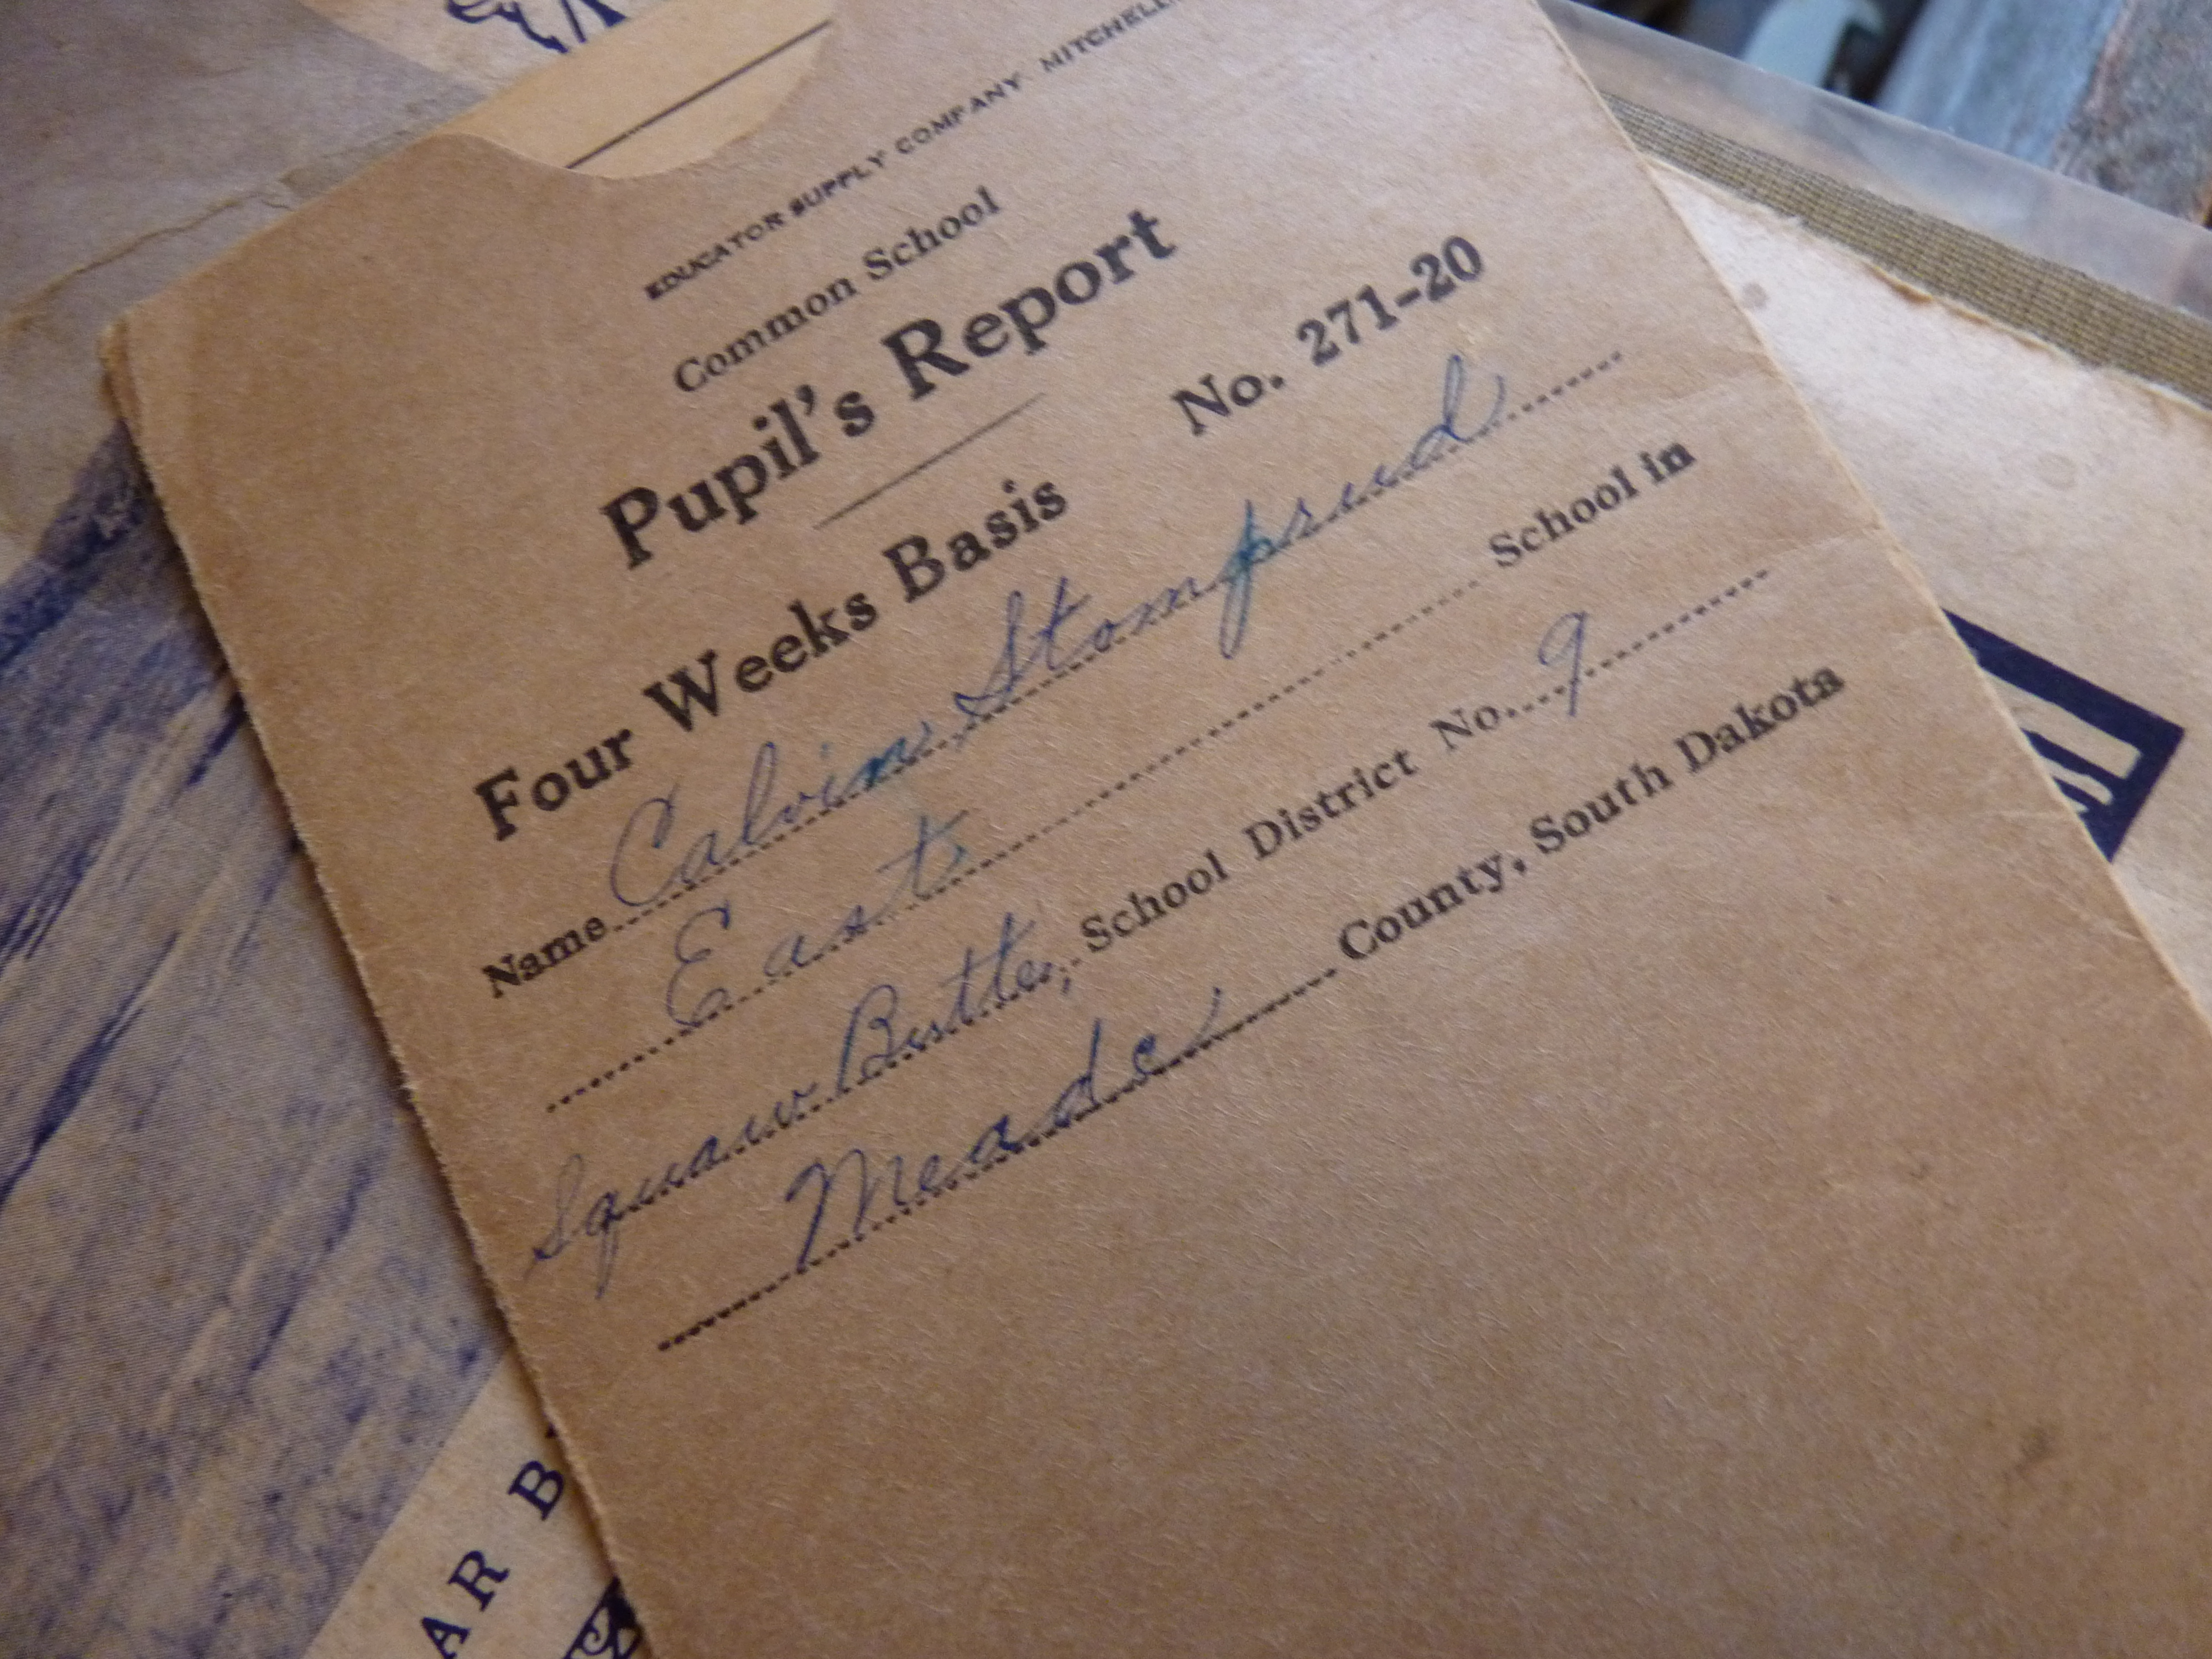 EDUCATOR SUPPLY COMPANY MITCHELL
Common School
Pupil's Report
Four Weeks Basis No. 271-20
Name Calvin Stomprud
East School in
Squaw Butte, School District No. 9
Meade County, South Dakota
AR B